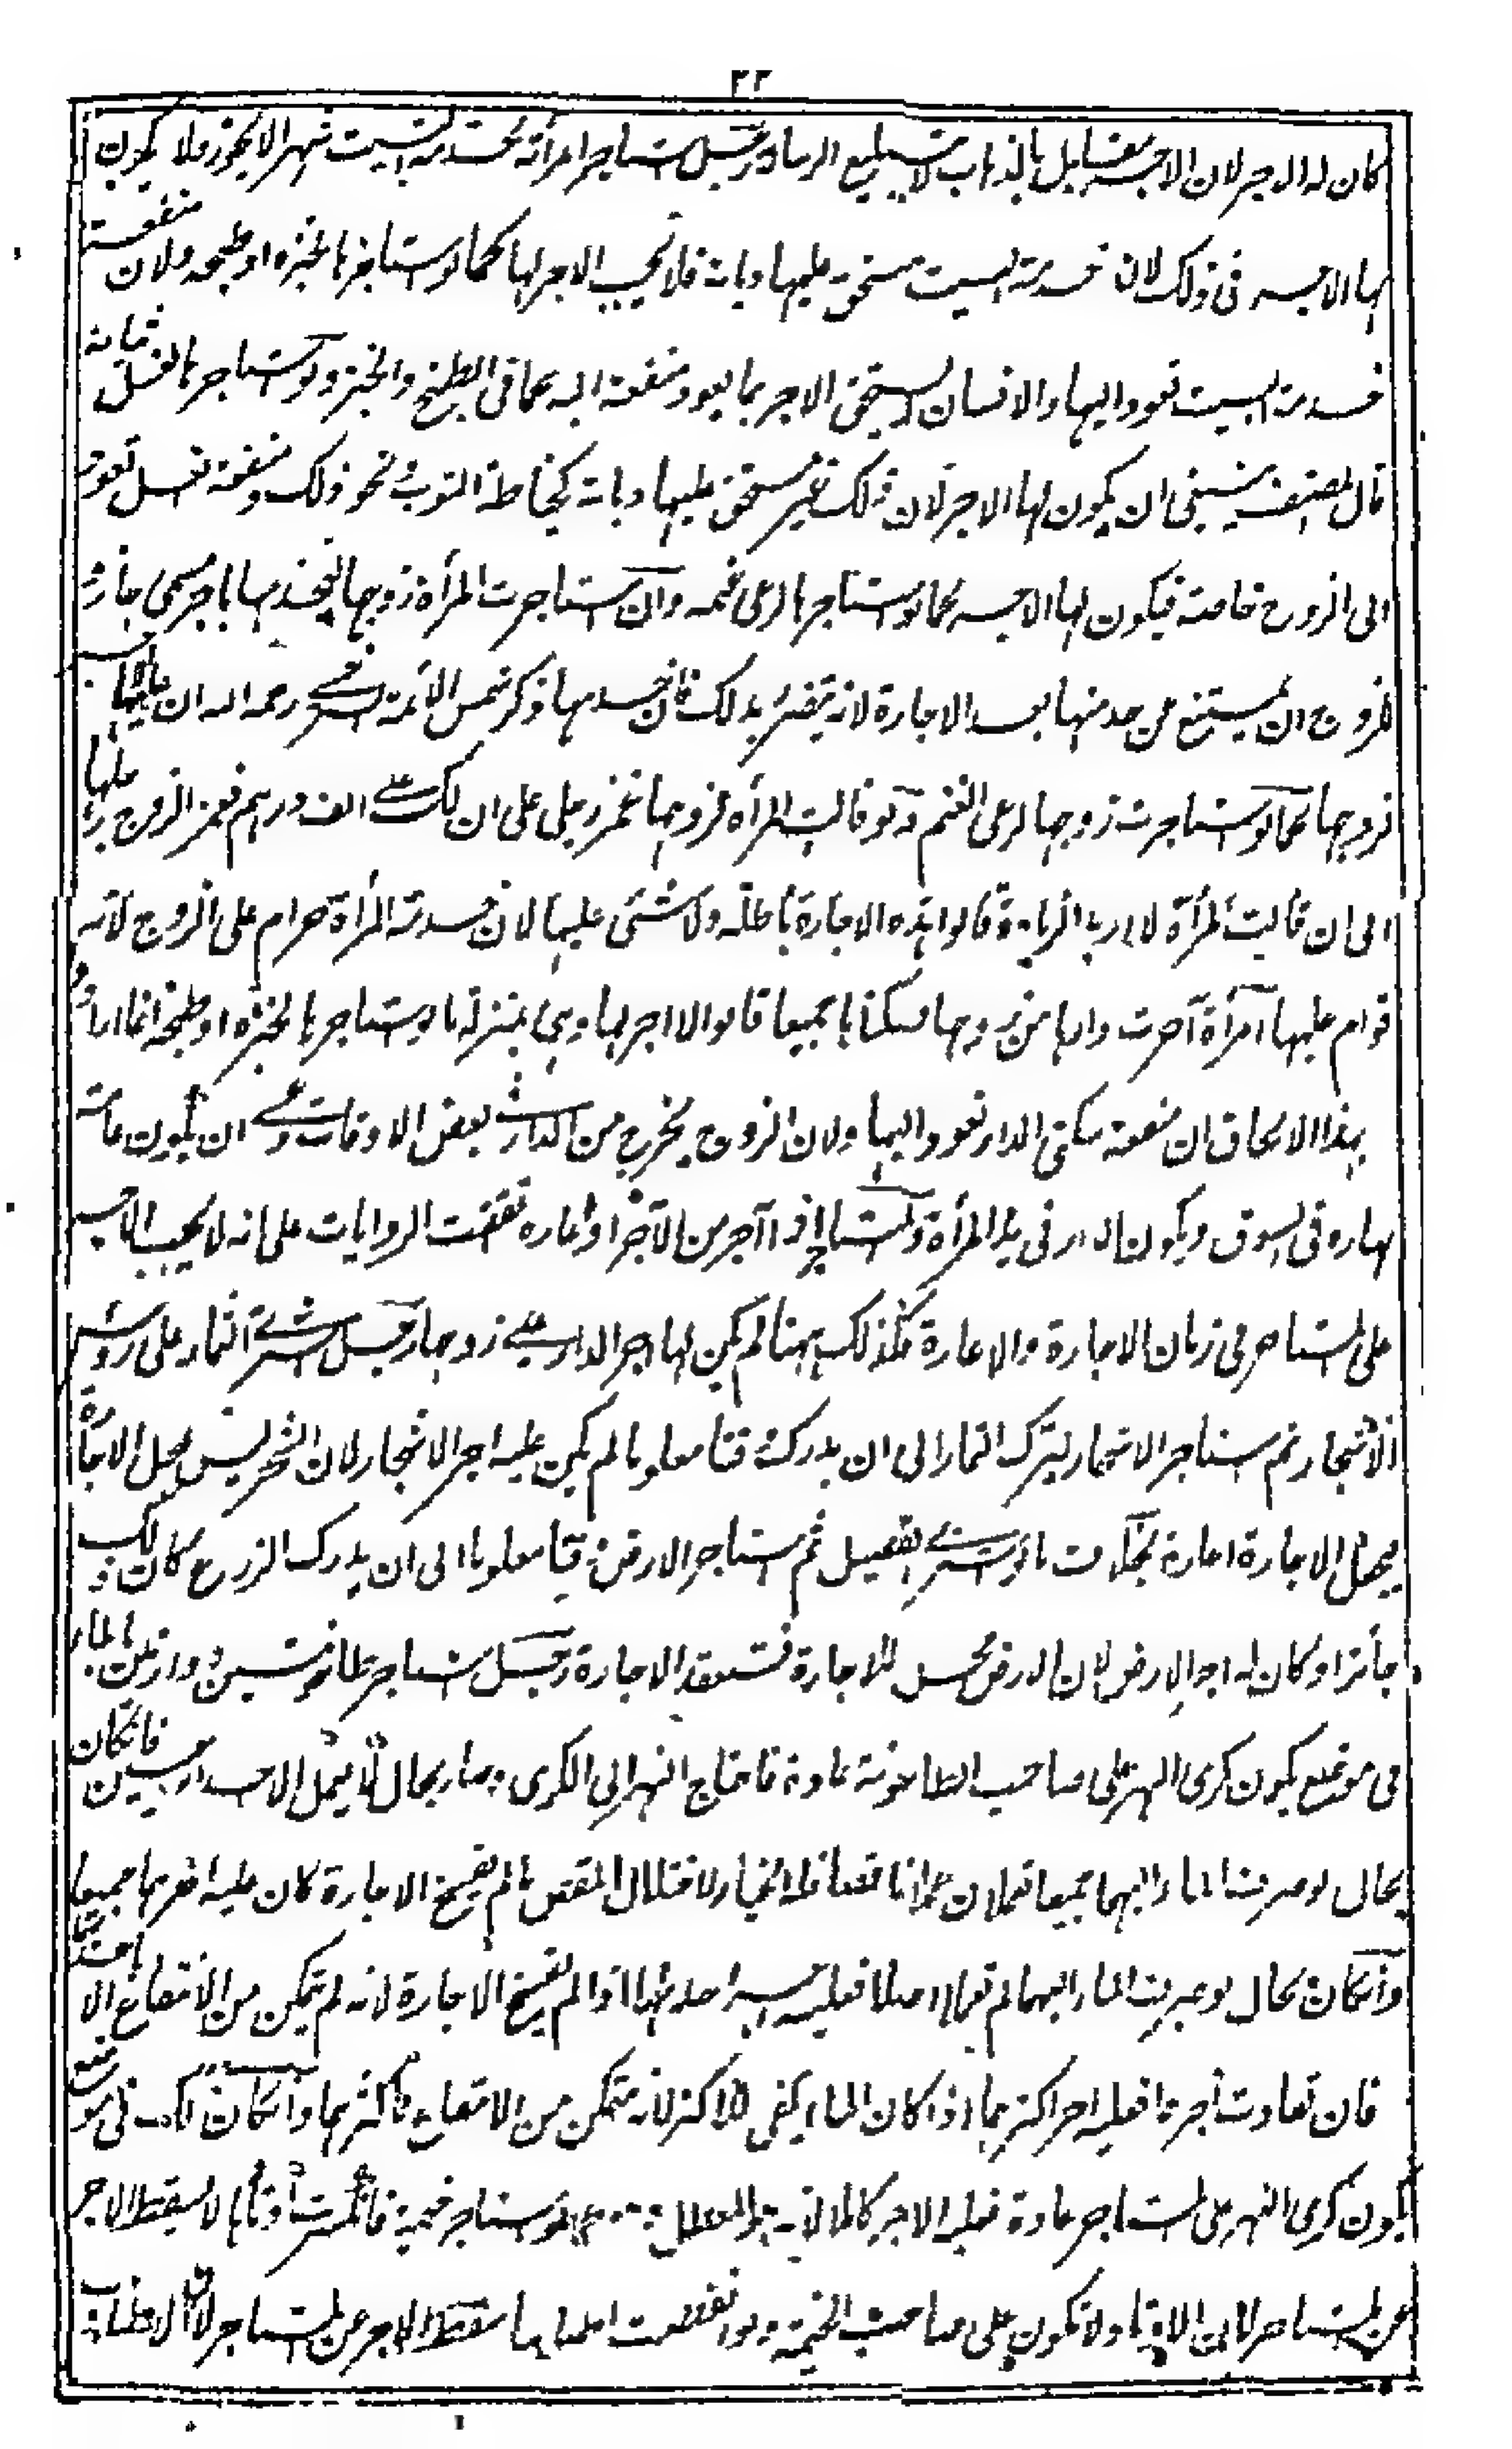 ٢٢
كان له الاجر لان الاجر مقابل بالذهاب لا بتبليغ الرسالة رجل استاجر امرأته لخدمة البيت شهرا لا يجوز ولا يكون
لها الاجر فى ذلك لان خدمة البيت مستحق عليها ديانة فلا يجب الاجر لها كما لو استاجرها لخبزه او طبخه ولان منفعة
خدمة البيت تعود اليها والانسان لا يستحق الاجر بما يعود منفعة اليه كما فى الطبخ والخبز ولو استاجرها لغسل ثيابه
قال المصنف ينبغى ان يكون لها الاجر لان ذلك غير مستحق عليها ديانة كخياطة الثوب ونحو ذلك ومنفعة الغسل تعود
الى الزوج خاصة فيكون لها الاجر كما لو استاجرها لرعى غنمه وان استاجرت المرأة زوجها ليخدمها باجر مسمى جاز و
للزوج ان يمتنع عن خدمتها بعد الاجارة لانه يتضرر بذلك فان خدمها ذكر شمس الأئمة السرخسي رحمه الله ان عليها
زوجها كما لو استاجرت زوجها لرعى الغنم ولو قالت المرأة لزوجها اغمز رجلى على ان لك علي الف درهم فغمز الزوج رجلها
الى ان قالت المرأة لا اريد الزيادة قالوا هذه الاجارة باطلة ولا شئ عليها لان خدمة المرأة حرام على الزوج لانه
قوام عليها امرأة آجرت دارها من زوجها وسكناها جميعا قالوا لا اجر لها وهى بمنزلة ما لو استاجرها لخبزه او طبخه انما اراد
بهذا الالحاق ان منفعة سكنى الدار تعود اليها ولان الزوج يخرج من الدار في بعض الاوقات وعسى ان يكون عامة
نهاره فى السوق ويكون الدار فى يد المرأة والمستاجر اذا آجر من الآجر او اعاره اتفقت الروايات على انه لا يجب الاجر
على المستاجر فى زمان الاجارة والاعارة فكذلك ههنا لم يكن لها اجر الدار على زوجها رجل اشترى الثمار على رؤس
الاشجار ثم استاجر الاشجار ليترك الثمار الى ان يدرك وقتا معلوما لم يكن عليه اجر الاشجار لان الشجر ليس محل الاجارة
فيجعل الاجارة اعارة بخلاف ما لو اشترى الفصيل ثم استاجر الارض وقتا معلوما الى ان يدرك الزرع كان ذلك
جائزا وكان له اجر الارض لان الارض محل للاجارة فتنعقد الاجارة رجل استاجر طاحونتين دوارتين بالماء
فى موضع يكون كرى النهر على صاحب الطاحونة عادة فاحتاج النهر الى الكرى وصار بحال لا يعمل الا احد الرحيين فان كان
بحال لو صرف الماء اليهما جميعا تعملان عملا ناقصا فله الخيار لاختلال المقصود فان لم يفسخ الاجارة كان عليه اجرهما جميعا
وان كان بحال لو صرف الماء اليهما لم تعملا اصلا فعليه اجر احدهما اذا لم يفسخ الاجارة لانه لم يتمكن من الانتفاع الا باحدهما
فان تفاوت أجرهما فعليه اجر اكثرهما اذا كان الماء يكفى للاكثر لانه متمكن من الانتفاع باكثرهما وان كان ذلك فى موضع
يكون كرى النهر على المستاجر عادة فعليه الاجر كاملا لانه هو المعطل ولو استاجر خيمة فانكسرت اوتادها لا يسقط الاجر
عن المستاجر لان الاوتاد لا تكون على صاحب الخيمة ولو انقطعت اطنابها سقط الاجر عن المستاجر لان الاطناب